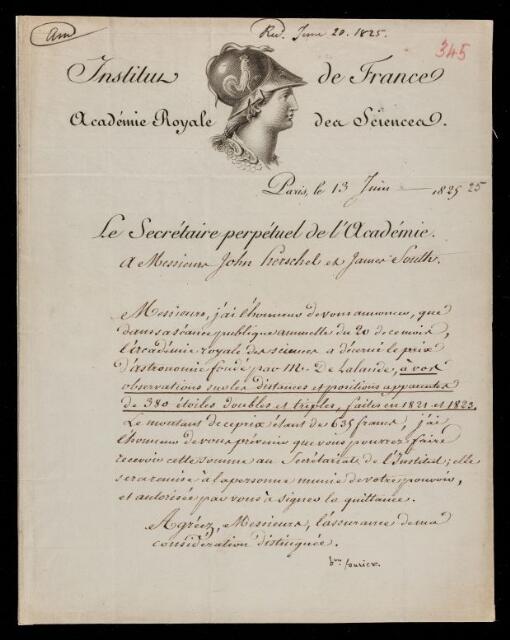 Am
Rec. June 20. 1825.
345
Institut de France
Académie Royale des Sciences.
Paris, le 13 Juin 1825 25
Le Secrétaire perpétuel de l'Académie.
A Messieurs John Herschel et James South.
Messieurs, j'ai l'honneur de vous annoncer, que
dans sa séance publique annuelle du 20 de ce mois,
l'académie royale des sciences a décerné le prix
d'astronomie fondé par M. de Lalande, à vos
observations sur les distances et positions apparentes
de 380 étoiles doubles et triples, faites en 1821 et 1823.
Le montant de ce prix étant de 635 francs, j'ai
l'honneur de vous prévenir que vous pourrez faire
recevoir cette somme au Secrétariat de l'Institut; elle
sera remise à la personne munie de votre pouvoir,
et autorisée par vous à signer la quittance.
Agréez, Messieurs, l'assurance de ma
considération distinguée.
bon fourier.